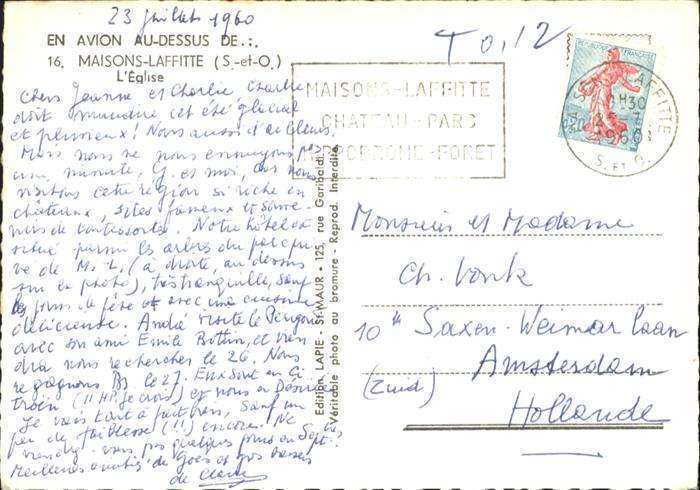 23 juillet 1960
EN AVION AU-DESSUS DE . : .
16. MAISONS-LAFFITTE (S.-et-O.)
L'Église
Chers Jeanne et Charlie, Charlie
doit maudire cet été glacial
et pluvieux! Nous aussi d'ailleurs.
Mais nous ne nous ennuyons pas
une minute, G. et moi, car nous
visitons cette région si riche en
châteaux, sites fameux et souve-
nirs de toutes sortes. Notre hôtel est
situé parmi les arbres du parc
de M.-L. (à droite, au dessus
sur la photo), très tranquille, sauf
les jours de fête et avec une cuisine
délicieuse. André visite le Périgord
avec son ami Emile Bottin, et vien
dra nous rechercher le 26. Nous
regagnons le 27. Eux sont en Ci
troën (11 HP. je crois) et nous en
Je vais tout à fait bien, sauf un
peu de faiblesse (!!) encore. Ne
vous pas quelques jours en Sept.?
Meilleures amitiés de Goes et gros baisers
de Claire
Edition LAPIE - ST-MAUR • 125, rue Garibaldi
Véritable photo au bromure - Reprod. Interdite
T 0,12
MAISONS-LAFFITTE
CHATEAU - PARC
HIPPODROME - FORET
REPUBLIQUE FRANÇAISE
LAFFITTE
H30
1960
S. ET O.
Monsieur et Madame
Ch. Vonk
10 Saxen-Weimar laan
Amsterdam
(Zuid)
Hollande